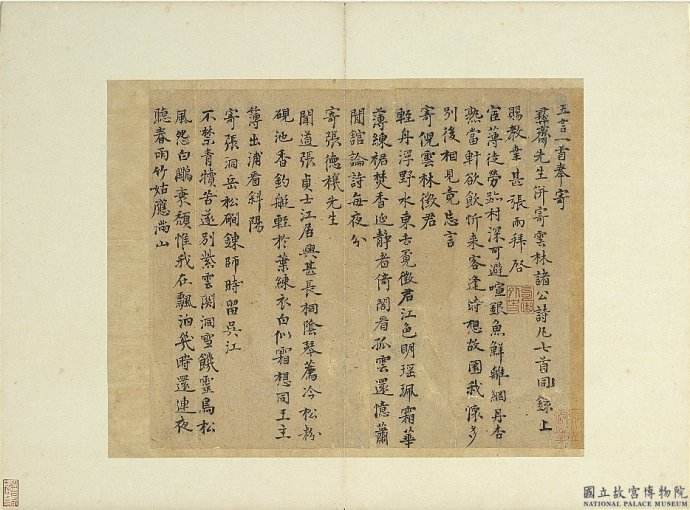 五言一首奉寄
彝齋先生併寄雲林諸公詩凡七首同錄上
賜教幸甚張雨拜啓
宦薄徒勞臨村深可避喧銀魚鮮雞綱丹杏
熟當軒欲飲忻來客逢詩想故園我懷多
別後相見竟忘言
寄倪雲林徵君
輕舟浮野水東去覓徵君江色明瑶珮霜華
薄練裙焚香延靜者倚閣看孤雲還憶蕭
閒館論詩每夜分
寄張德機先生
聞道張貞士江居興甚長桐陰琴薦冷松粉
硯池香釣艇輕於葉練衣白似霜想同王主
薄出浦看斜陽
寄張洞岳松磵鍊師時留吳江
不禁青犢苦遂別紫雲關洞雪饑靈鳥松
風怨白鷴衰頹惟我在飄泊幾時還連夜
聽春雨竹姑應滿山
國立故宮博物院
NATIONAL PALACE MUSEUM